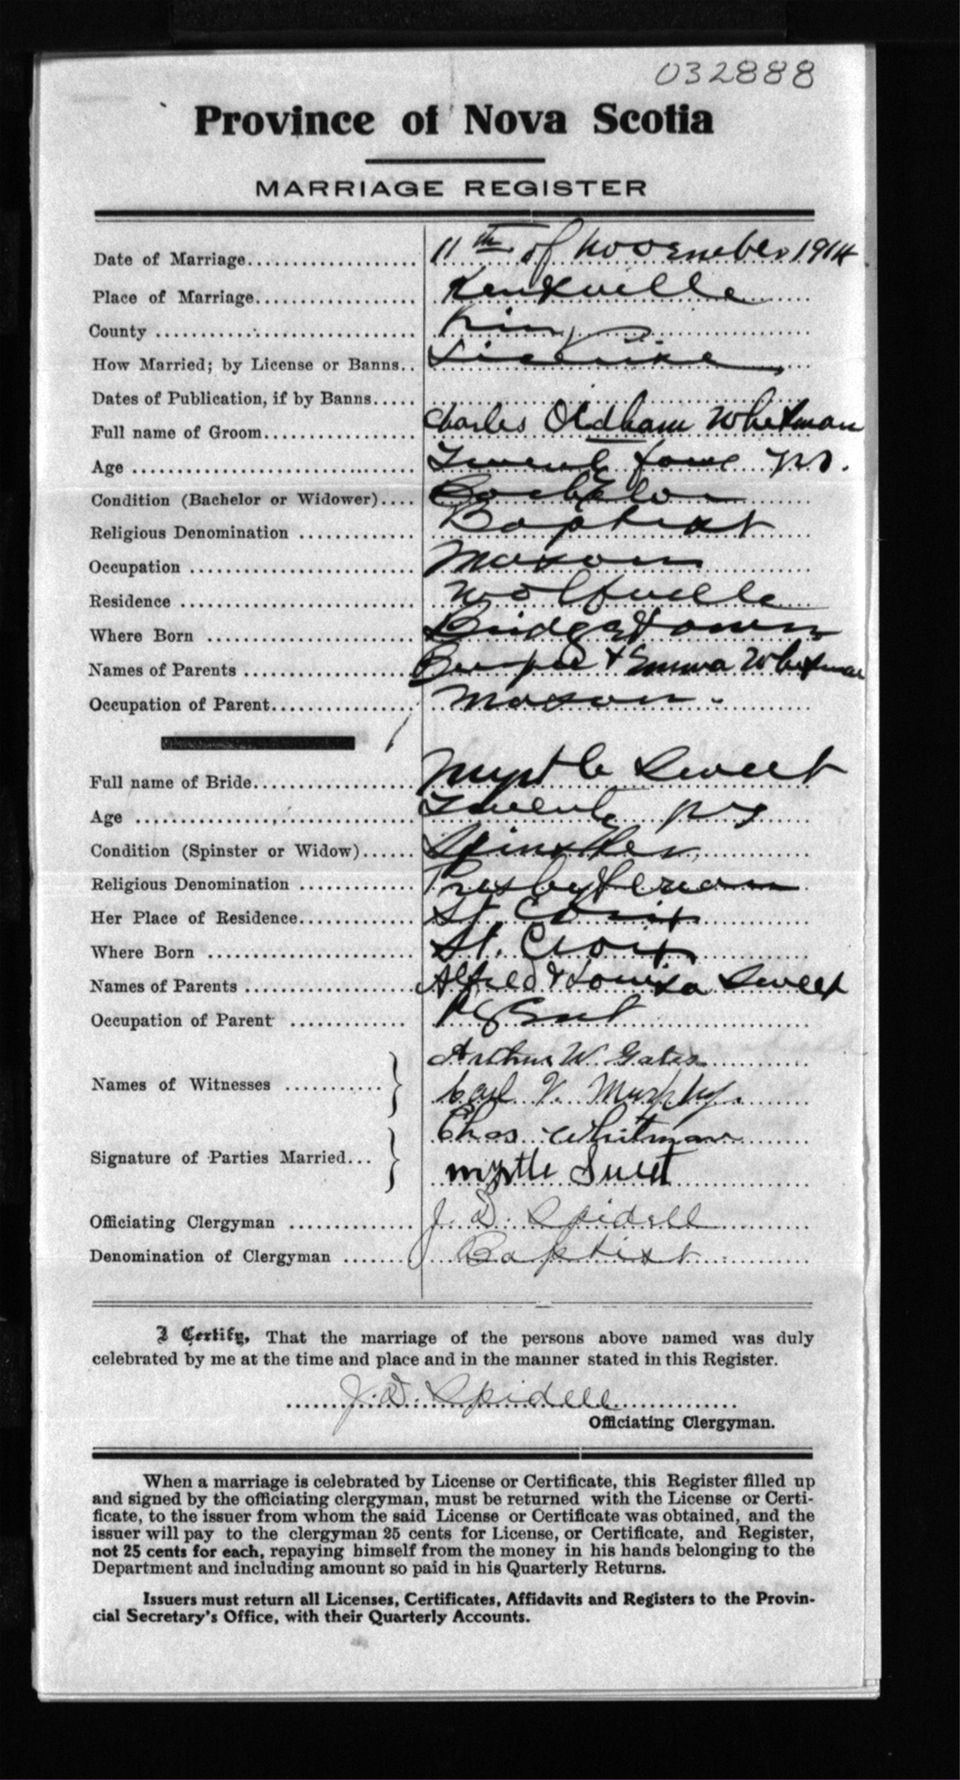 032888
Province of Nova Scotia
MARRIAGE REGISTER
Date of Marriage 11th of November 1914
Place of Marriage Kentville
County Kings
How Married; by License or Banns License
Dates of Publication, if by Banns
Full name of Groom Charles Oldham Whitman
Age Twenty four yrs.
Condition (Bachelor or Widower) Bachelor
Religious Denomination Baptist
Occupation Mason
Residence Wolfville
Where Born Bridgetown
Names of Parents Burpee & Emma Whitman
Occupation of Parent Mason
Full name of Bride Myrtle Sweet
Age Twenty yrs
Condition (Spinster or Widow) Spinster
Religious Denomination Presbyterian
Her Place of Residence St. Croix
Where Born St. Croix
Names of Parents Alfred & Louisa Sweet
Occupation of Parent Agent
Names of Witnesses Arthur W. Gates
Carl V. Murphy.
Signature of Parties Married Chas Whitman
Myrtle Sweet
Officiating Clergyman J. D. Spidell
Denomination of Clergyman Baptist
I Certify, That the marriage of the persons above named was duly
celebrated by me at the time and place and in the manner stated in this Register.
J. D. Spidell
Officiating Clergyman.
When a marriage is celebrated by License or Certificate, this Register filled up
and signed by the officiating clergyman, must be returned with the License or Certi-
ficate, to the issuer from whom the said License or Certificate was obtained, and the
issuer will pay to the clergyman 25 cents for License, or Certificate, and Register,
not 25 cents for each, repaying himself from the money in his hands belonging to the
Department and including amount so paid in his Quarterly Returns.
Issuers must return all Licenses, Certificates, Affidavits and Registers to the Provin-
cial Secretary's Office, with their Quarterly Accounts.